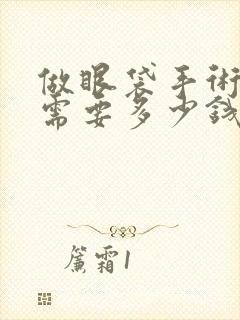 做眼袋手术
需要多少钱
簾霜1